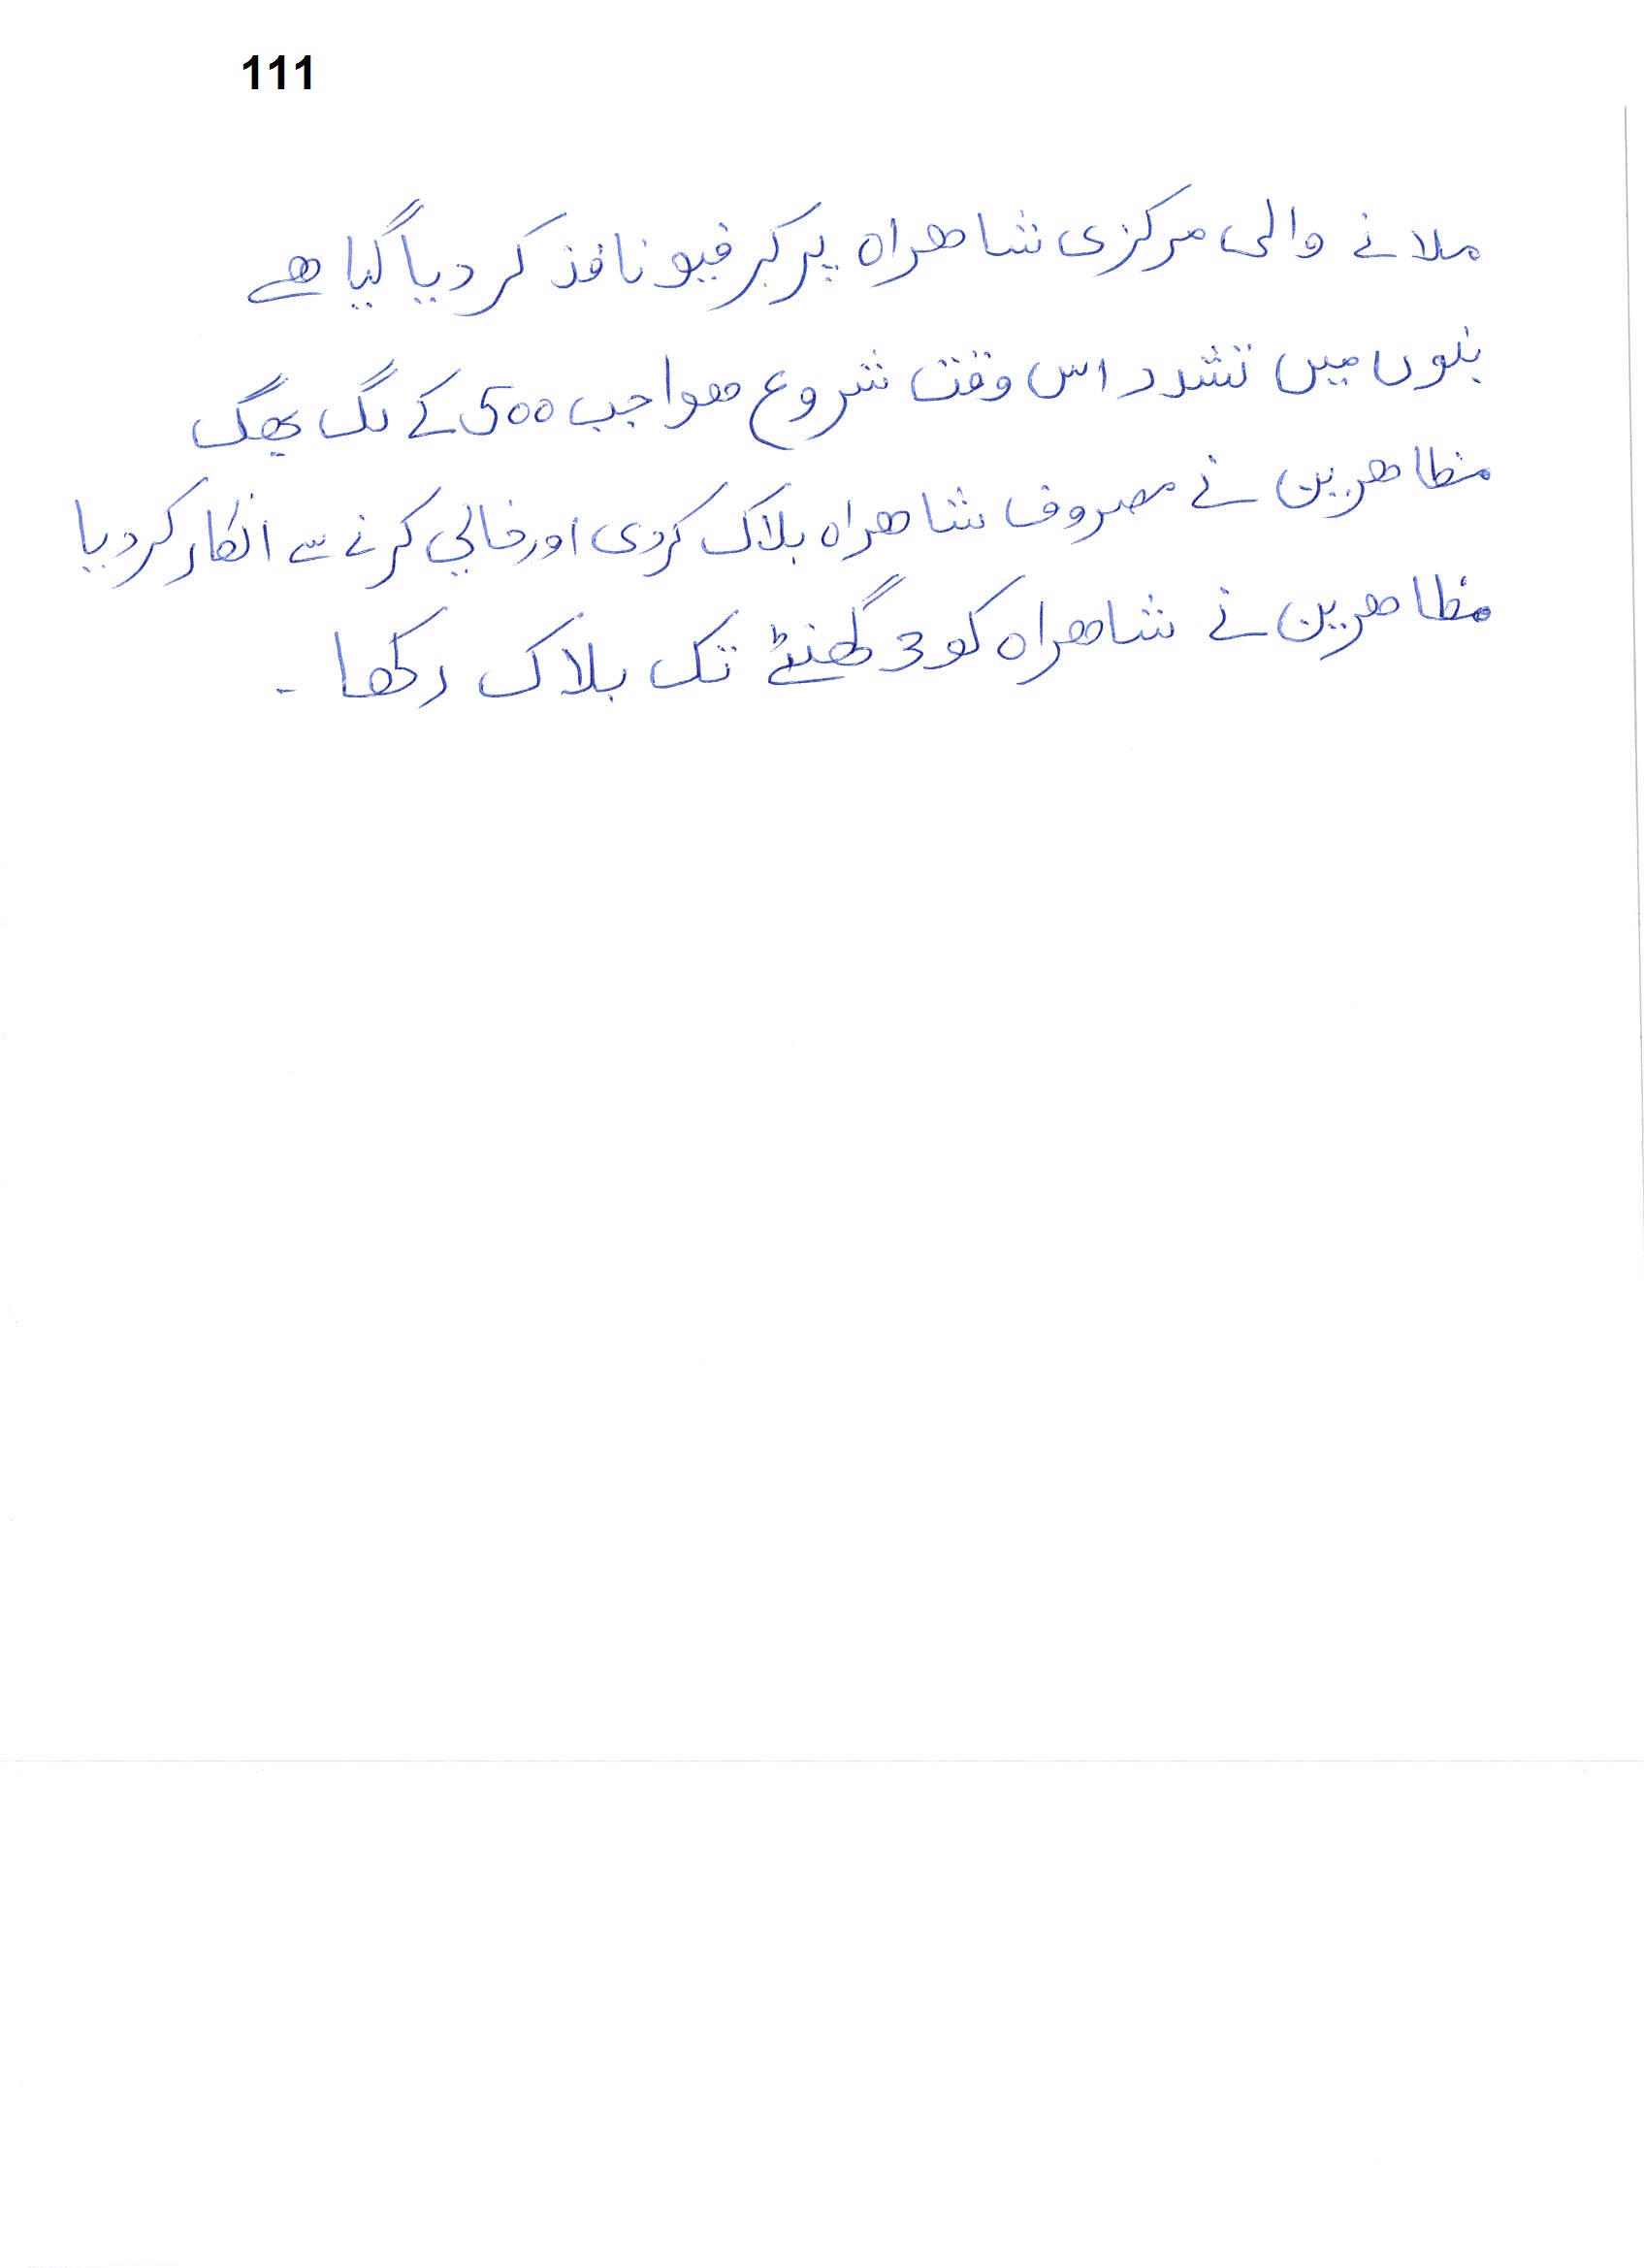 111
ملانے والی مرکزی شاھراہ پر کرفیو نافذ کر دیا گیا ھے
بنوں میں تشدد اس وقت شروع ھوا جب 500 کے لگ بھگ
مظاھرین نے مصروف شاھراہ بلاک کردی اور خالی کرنے سے انکار کر دیا
مظاھرین نے شاھراہ کو 3 گھنٹے تک بلاک رکھا ۔